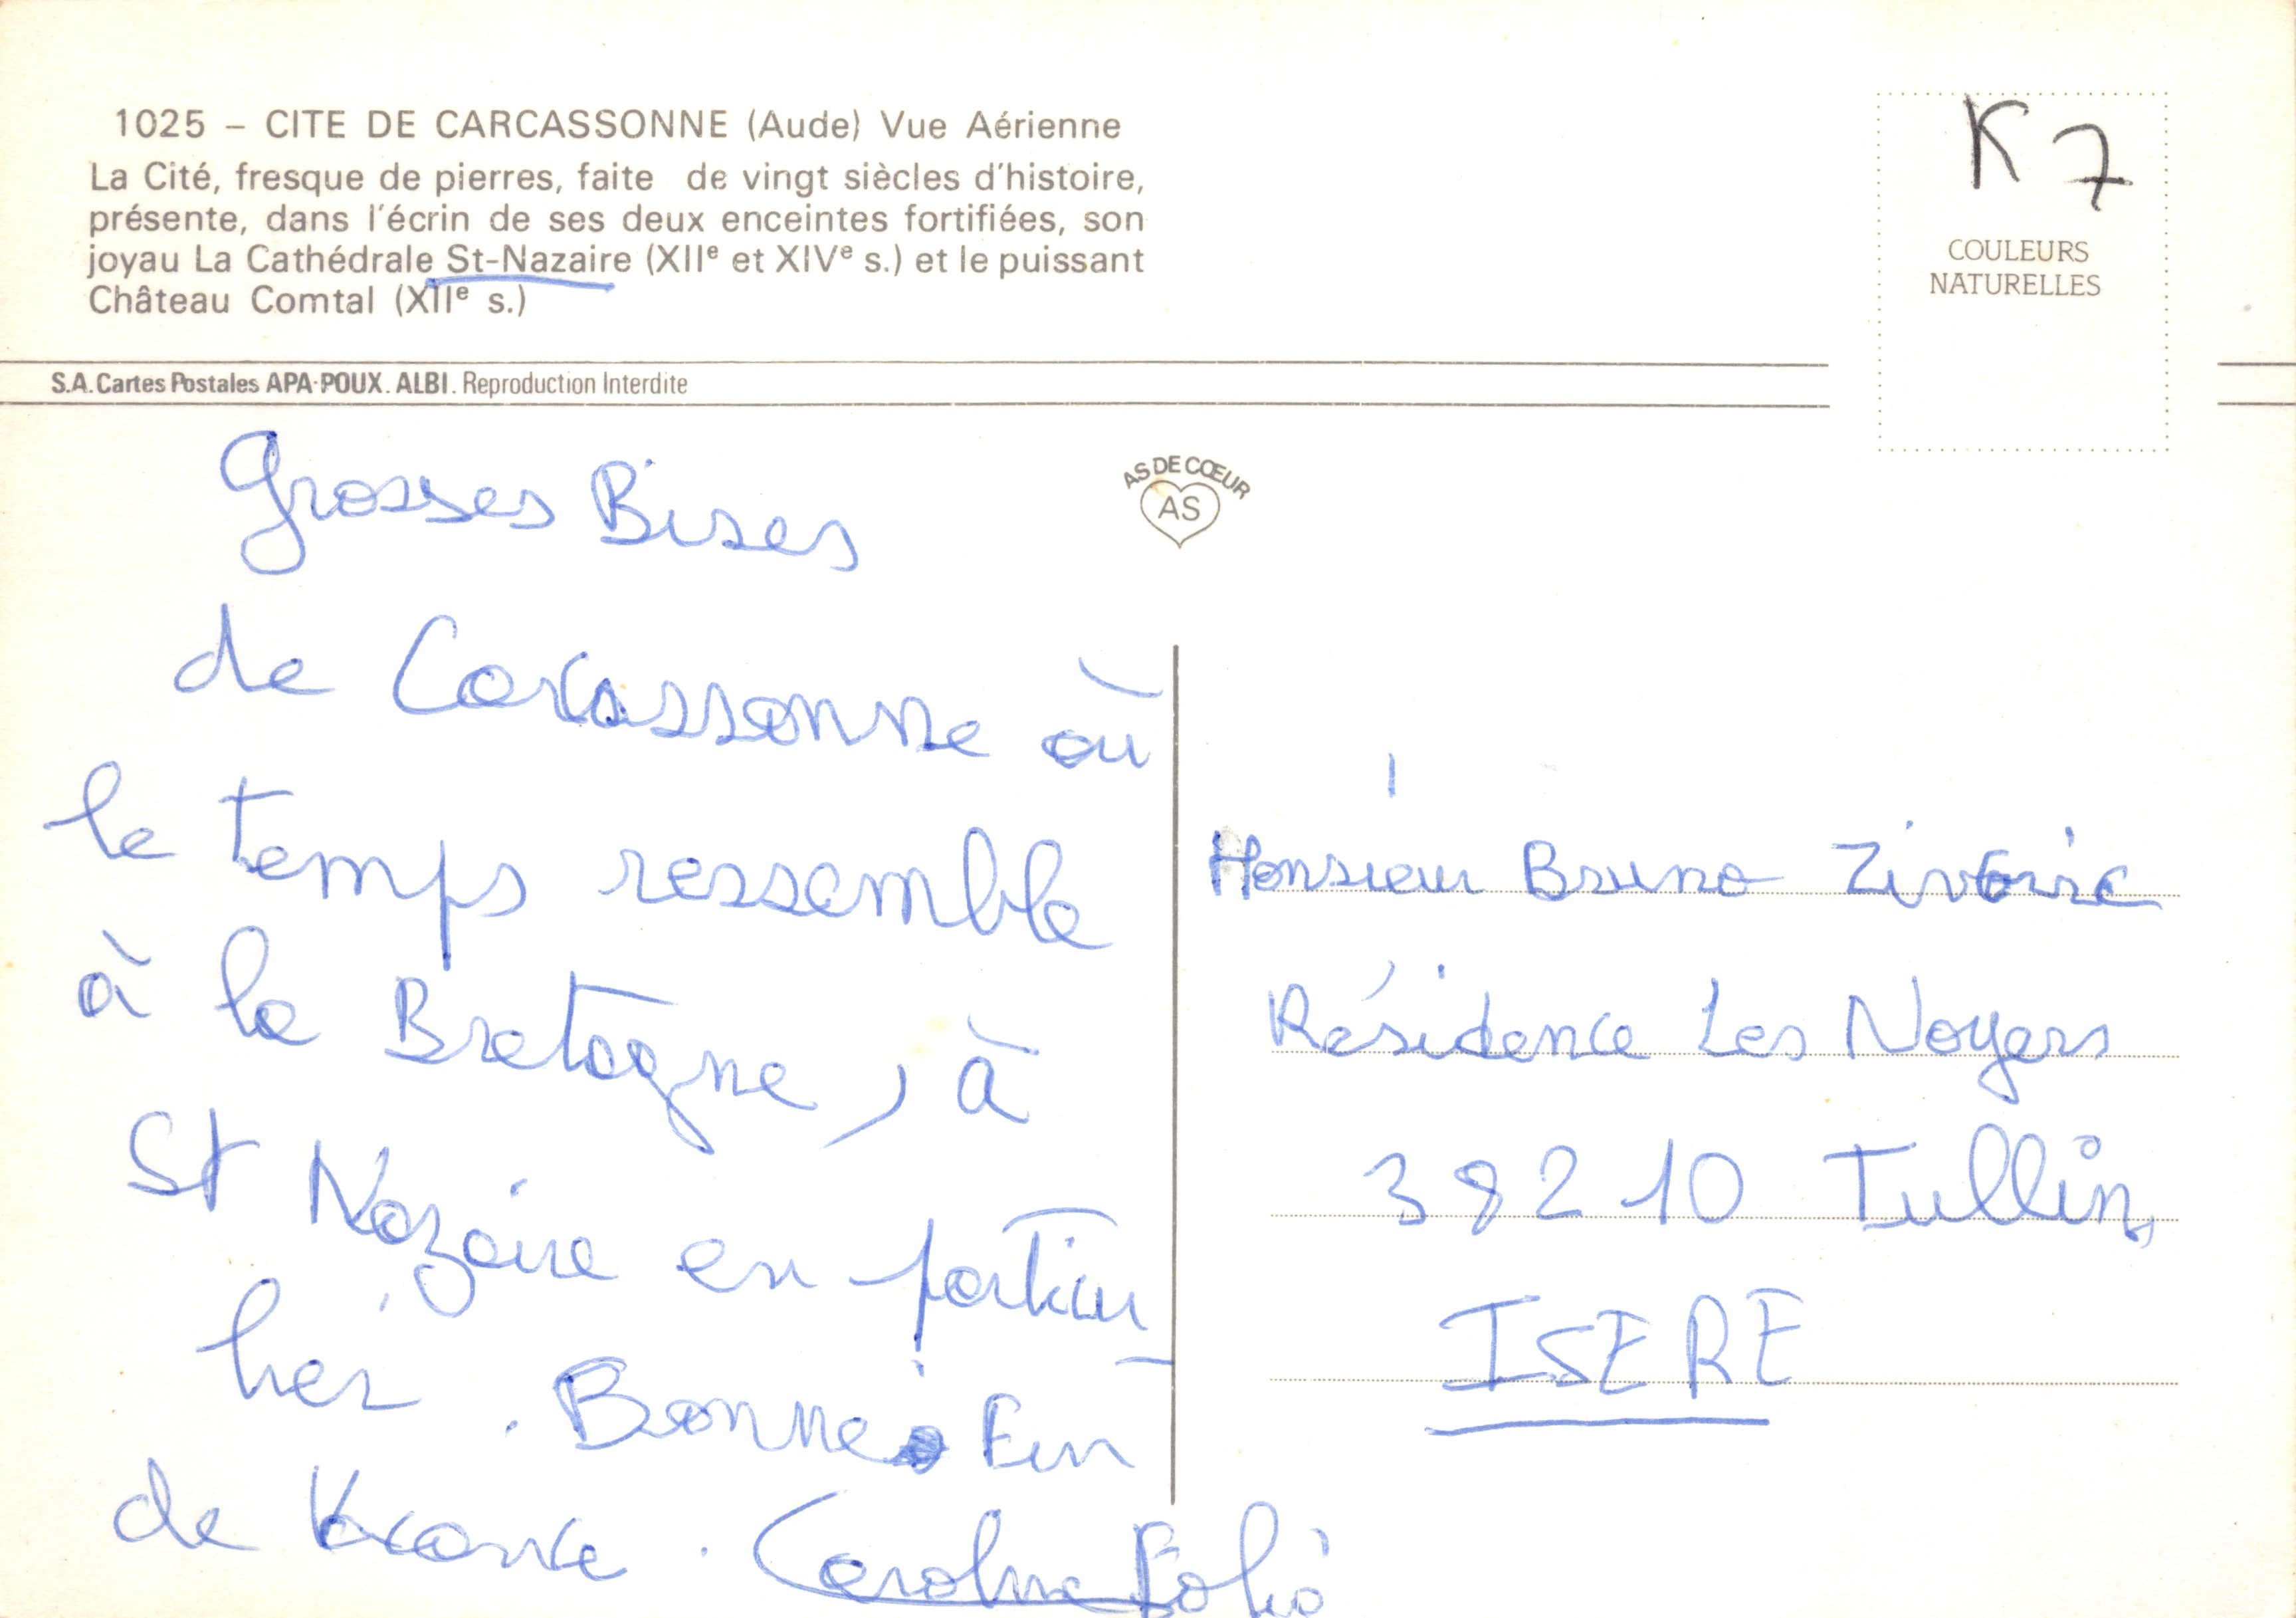 1025 – CITE DE CARCASSONNE (Aude) Vue Aérienne
La Cité, fresque de pierres, faite de vingt siècles d'histoire,
présente, dans l'écrin de ses deux enceintes fortifiées, son
joyau La Cathédrale St-Nazaire (XIIe et XIVe s.) et le puissant
Château Comtal (XIIe s.)
K7
COULEURS
NATURELLES
S.A. Cartes Postales APA-POUX. ALBI. Reproduction Interdite
AS DE CŒUR
AS
Grosses Bises
de Carcassonne où
le temps ressemble
à la Bretagne, à
St Nazaire en particu
lier. Bonne Fin
de Vacance. Caroline
Monsieur Bruno
Résidence Les Noyers
38210 Tullins
ISERE